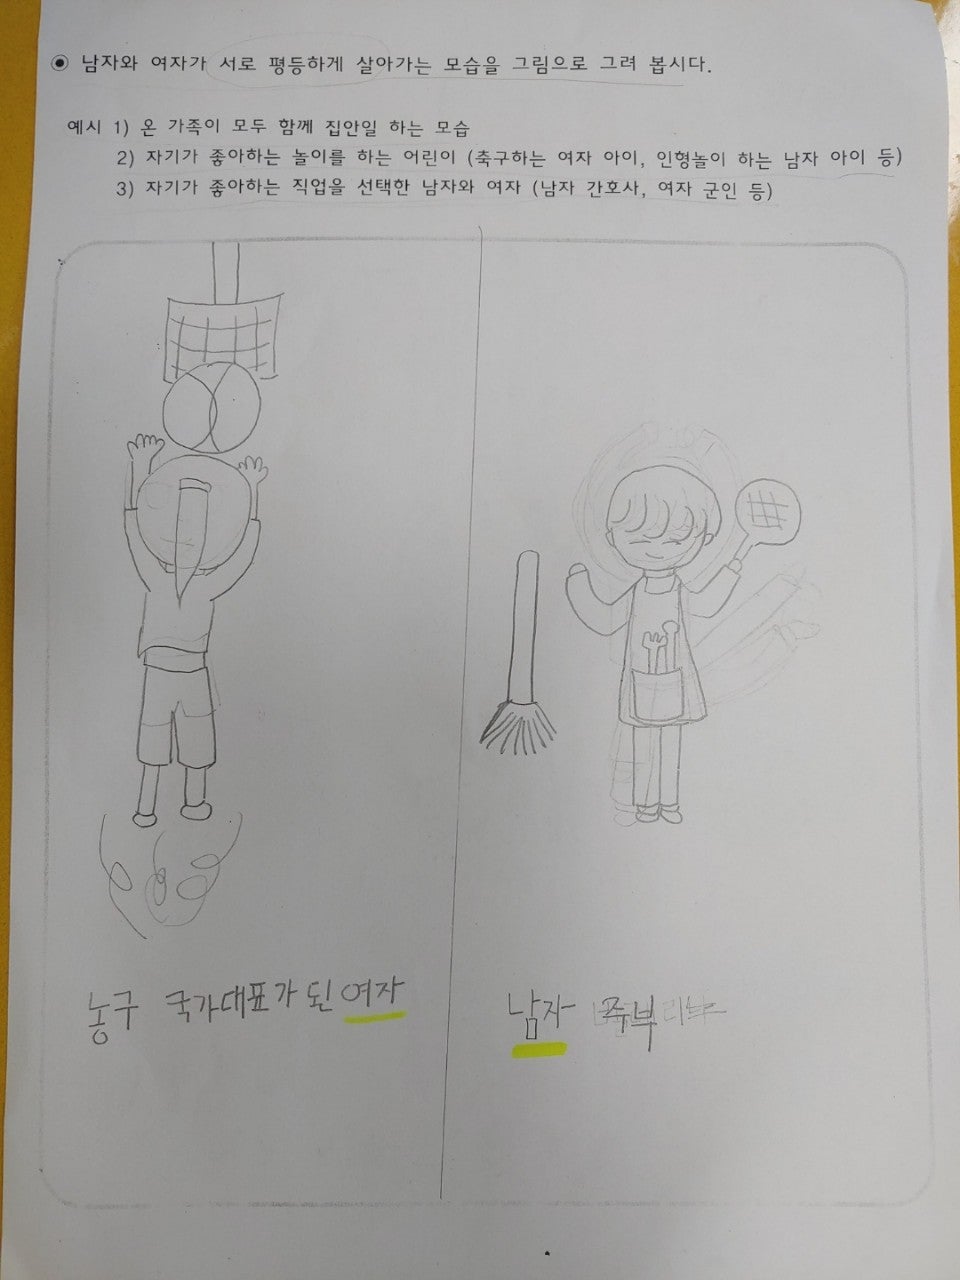 ◉ 남자와 여자가 서로 평등하게 살아가는 모습을 그림으로 그려 봅시다.
예시 1) 온 가족이 모두 함께 집안일 하는 모습
2) 자기가 좋아하는 놀이를 하는 어린이 (축구하는 여자 아이, 인형놀이 하는 남자 아이 등)
3) 자기가 좋아하는 직업을 선택한 남자와 여자 (남자 간호사, 여자 군인 등)
농구 국가대표가 된 여자
남자 주부